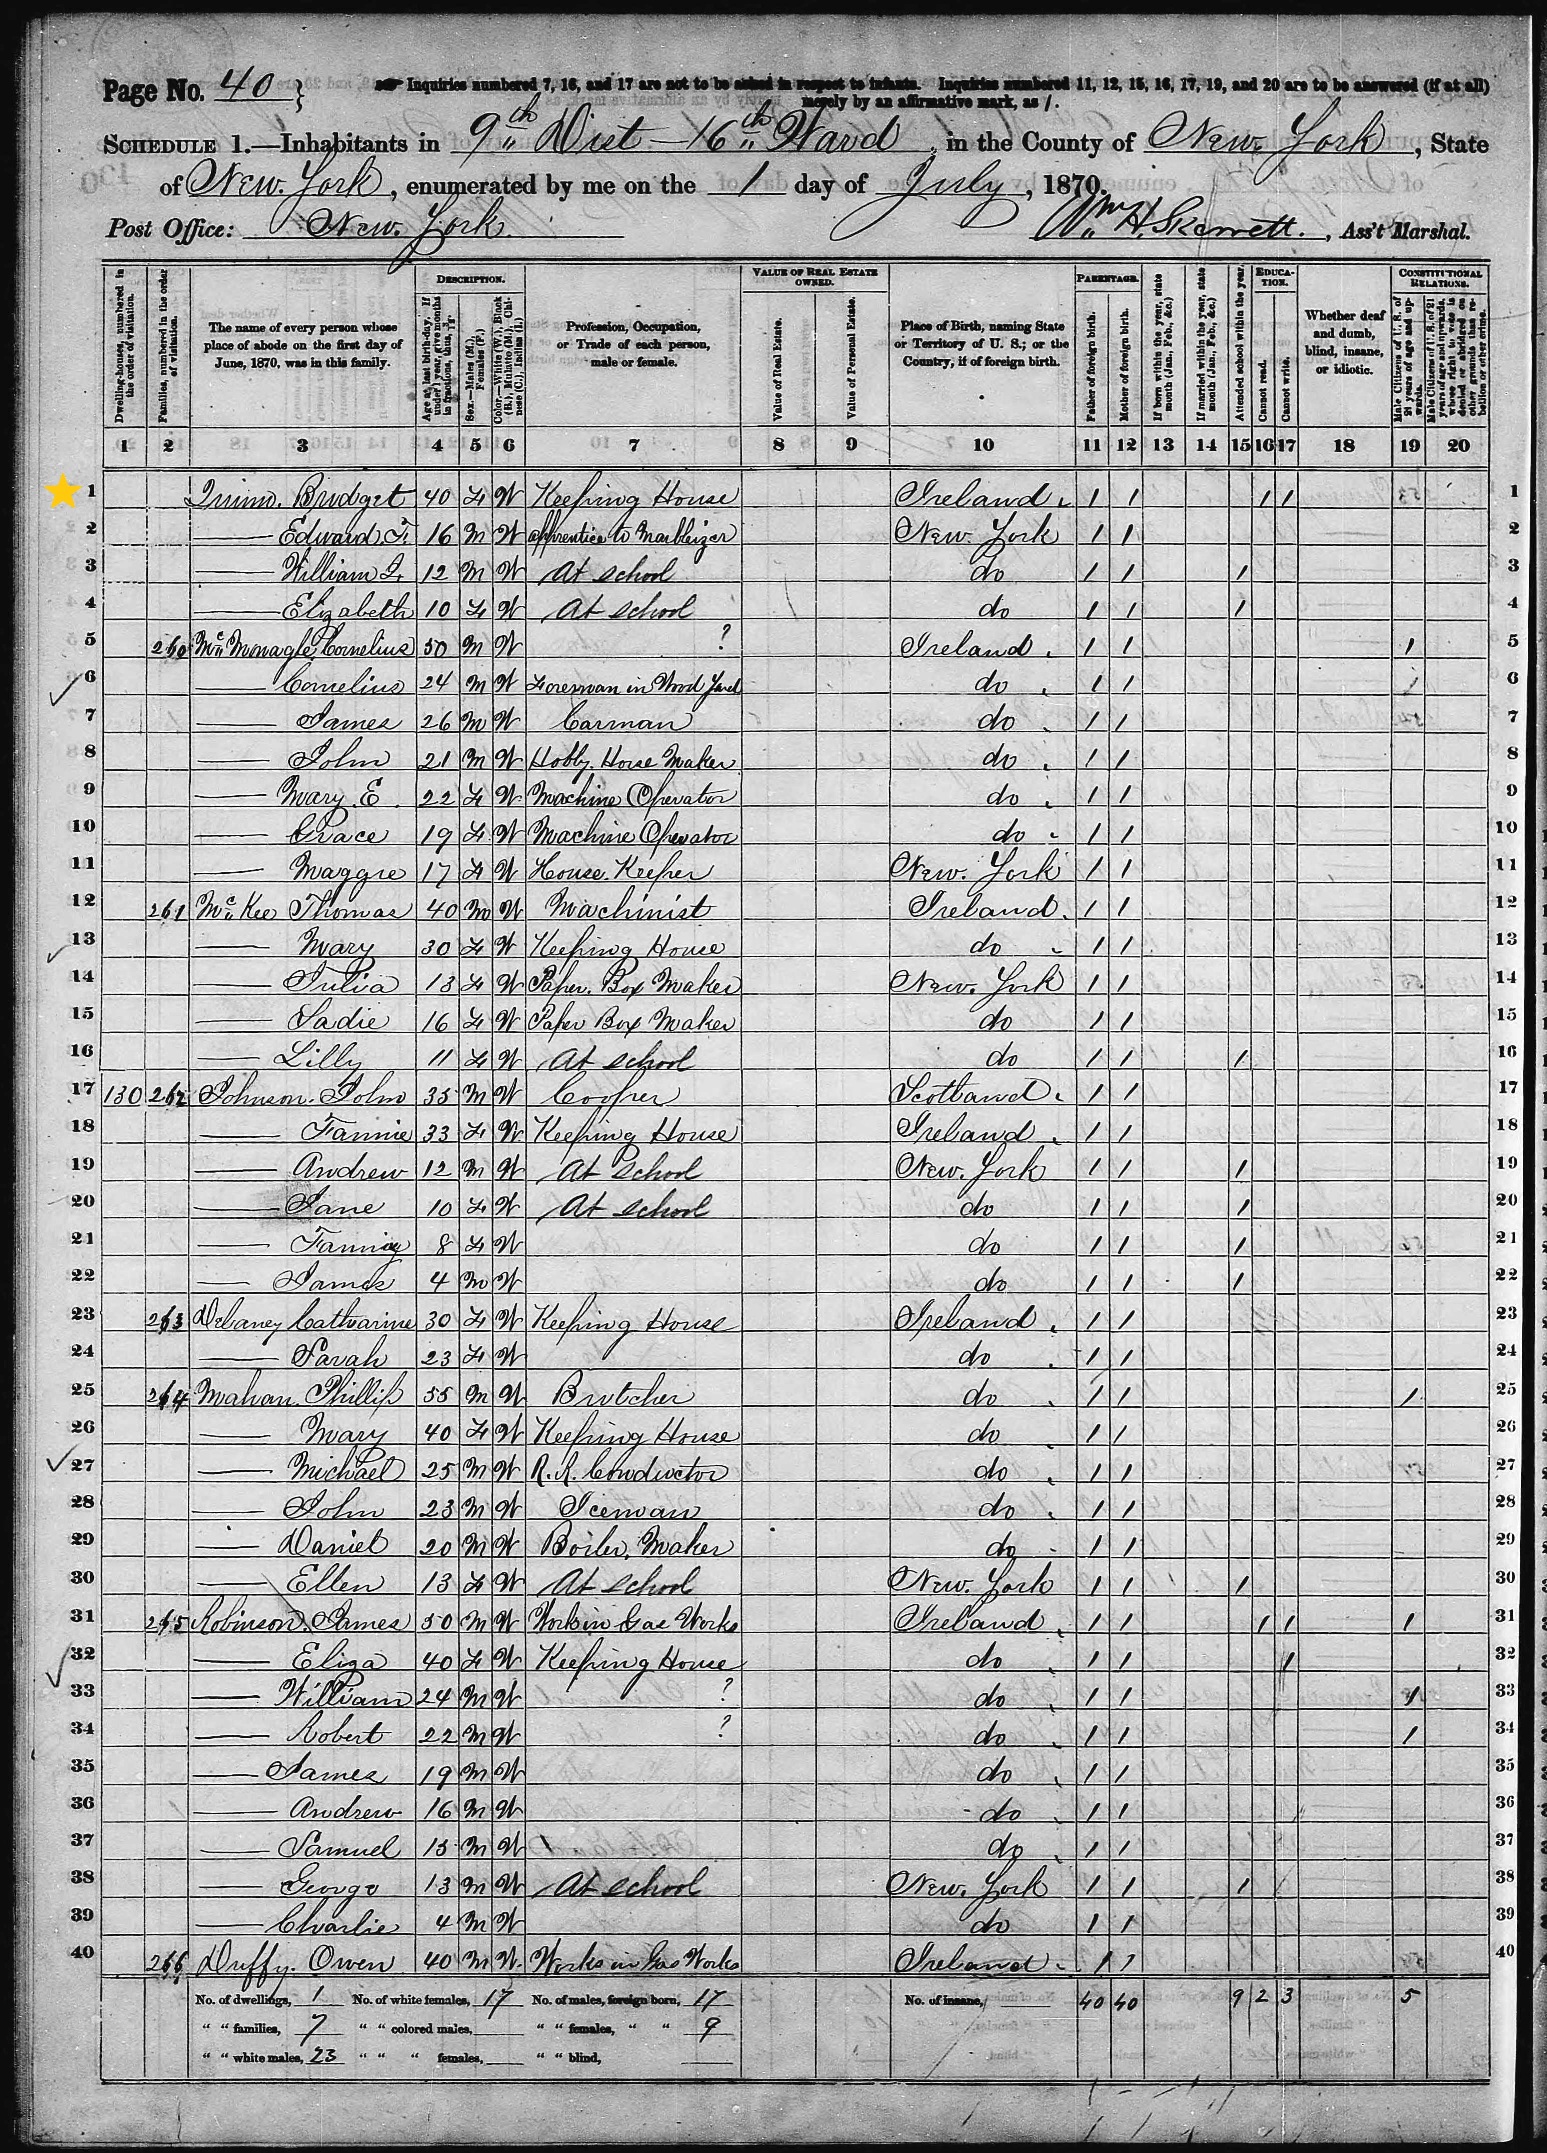 Page No. 40
Inquiries numbered 7, 16, and 17 are not to be asked in respect to infants. Inquiries numbered 11, 12, 15, 16, 17, 19, and 20 are to be answered (if at all)
merely by an affirmative mark, as /.
SCHEDULE 1.—Inhabitants in 9th Dist – 16th Ward, in the County of New York, State
of New York, enumerated by me on the 1 day of July, 1870.
Post Office: New York. Wm H. Skerrett., Ass't Marshal.
Dwelling-houses, numbered in the order of visitation.
Families, numbered in the order of visitation.
The name of every person whose place of abode on the first day of June, 1870, was in this family.
DESCRIPTION.
Age at last birth-day. If under 1 year, give months in fractions, thus, 3/12
Sex.—Males (M.), Females (F.)
Color.—White (W.), Black (B.), Mulatto (M.), Chinese (C.), Indian (I.)
Profession, Occupation, or Trade of each person, male or female.
VALUE OF REAL ESTATE OWNED.
Value of Real Estate.
Value of Personal Estate.
Place of Birth, naming State or Territory of U. S.; or the Country, if of foreign birth.
PARENTAGE.
Father of foreign birth.
Mother of foreign birth.
If born within the year, state month (Jan., Feb., &c.)
If married within the year, state month (Jan., Feb., &c.)
Attended school within the year.
EDUCATION.
Cannot read.
Cannot write.
Whether deaf and dumb, blind, insane, or idiotic.
CONSTITUTIONAL RELATIONS.
Male Citizens of U. S. of 21 years of age and upwards.
Male Citizens of U. S. of 21 years of age and upwards, whose right to vote is denied or abridged on other grounds than rebellion or other crime.
1 2 3 4 5 6 7 8 9 10 11 12 13 14 15 16 17 18 19 20
1 Quinn. Bridget 40 F W Keeping House Ireland / / / / 1
2 — Edward. F. 16 M W apprentice to Marbleizer New York / / 2
3 — William J. 12 M W At school do / / / 3
4 — Elizabeth 10 F W At school do / / / 4
5 260 Mc Monagle, Cornelius 50 M W ? Ireland / / / 5
6 — Cornelius 24 M W Foreman in Wood Yard do / / / 6
7 — James 26 M W Carman do / / 7
8 — John 21 M W Hobby. Horse Maker do / / 8
9 — Mary. E. 22 F W Machine Operator do / / 9
10 — Grace 19 F W Machine Operator do / / 10
11 — Maggie 17 F W House. Keeper New. York / / 11
12 261 Mc Kee Thomas 40 M W Machinist Ireland. / / 12
13 — Mary 30 F W Keeping House do / / 13
14 — Julia 13 F W Paper. Box Maker New. York / / 14
15 — Sadie 16 F W Paper Box Maker do / / 15
16 — Lilly 11 F W At school do / / / 16
17 130 262 Johnson. John 35 M W Cooper Scotland. / / 17
18 — Fannie 33 F W Keeping House Ireland / / 18
19 — Andrew 12 M W At school New. York / / / 19
20 — Jane 10 F W At school do / / / 20
21 — Fanny 8 F W do / / / 21
22 — James 4 M W do / / / 22
23 263 Delaney Catharine 30 F W Keeping House Ireland / / 23
24 — Sarah 23 F W do / / 24
25 264 Mahan. Phillip 55 M W Butcher do / / / 25
26 — Mary 40 F W Keeping House do / / 26
27 — Michael 25 M W R. R. Conductor do / / 27
28 — John 23 M W Iceman do / / 28
29 — Daniel 20 M W Boiler. Maker do / / 29
30 — Ellen 13 F W At school New. York / / / 30
31 265 Robinson. James 50 M W Works in Gas Works Ireland / / / / / 31
32 — Eliza 40 F W Keeping House do / / / 32
33 — William 24 M W ? do / / / 33
34 — Robert 22 M W ? do / / / 34
35 — James 19 M W do / / 35
36 — Andrew 16 M W do / / 36
37 — Samuel 15 M W do / / 37
38 — George 13 M W At school New. York / / / 38
39 — Charlie 4 M W do / / 39
40 266 Duffy. Owen 40 M W. Works in Gas Works Ireland / / 40
No. of dwellings, 1 No. of white females, 17 No. of males, foreign born, 17 No. of insane, 40 40 9 2 3 5
" " families, 7 " " colored males, " " females, " " 9
" " white males, 23 " " " females, " " blind,